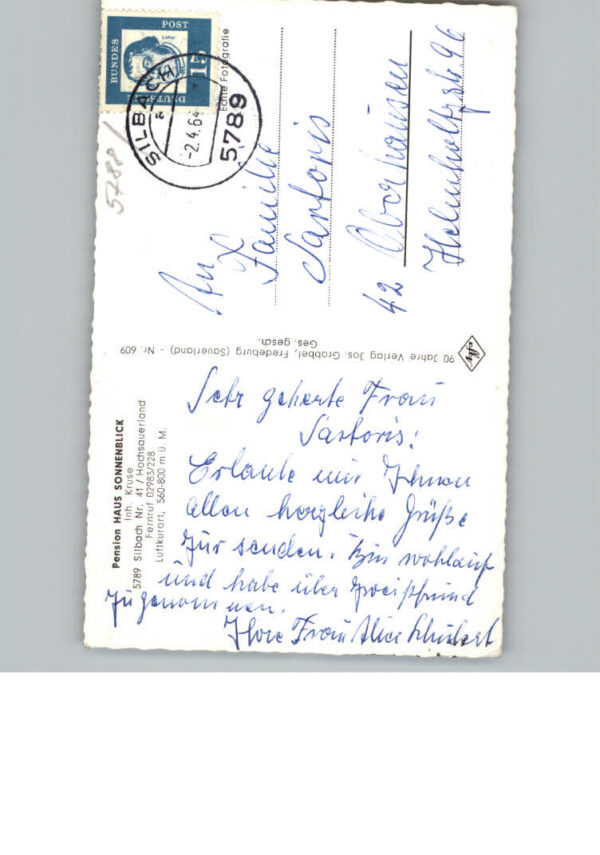 Pension HAUS SONNENBLICK
Inh. Kruse
5789 Silbach Nr. 41 / Hochsauerland
Fernruf 02983/228
Luftkurort, 560-800 m ü. M.
Sehr geherte Frau
Sartoris!
Erlaube mir Ihnen
allen herzliche Grüße
zur senden. Bin wohlauf
und habe über zwei Pfund
zugenommen.
Ihre Frau Alice Schubert
90 Jahre Verlag Jos. Grobbel, Fredeburg (Sauerland) - Nr. 609
Ges. gesch.
Echte Fotografie
DEUTSCHE
BUNDES
POST
Luther
15
SILBACH
a
-2.4.64
5789
5788/
An
Familie
Sartoris
42 Oberhausen
Helmholtzstr. 96